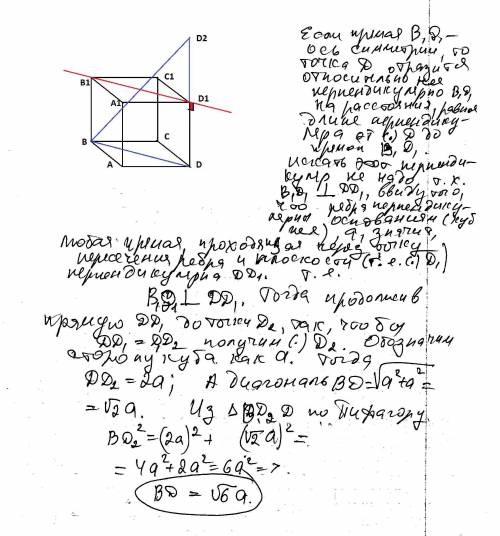 D2
B1
C1
A1
D1
B
C
A
D
Если прямая B₁D₁ –
ось симметрии, то
точка D отразится
относительно нее
перпендикулярно B₁D₁
на расстояния, равная
длине перпендику-
ляра от (·) D до
прямой B₁D₁
искать этот перпенди-
куляр не надо т.к.
B₁D₁ ⊥ DD₁, ввиду того,
что ребра перпендику-
лярны основаниям (куб
же), а, значит,
любая прямая, проходящая через точку
пересечения ребра и плоскости (т.е. (·) D₁)
перпендикулярна DD₁. т.е.
B₁D₁ ⊥ DD₁. Тогда продолжив
прямую DD₁ до точки D₂, так, чтобы
DD₁ = D₁D₂ получим (·) D₂. Обозначим
сторону куба как a. Тогда
DD₂ = 2a; А диагональ BD = √a²+a² =
= √2a. Из Δ BD₂D по Пифагору
BD₂² = (2a)² + (√2a)² =
= 4a² + 2a² = 6a² =>
BD = √6a.